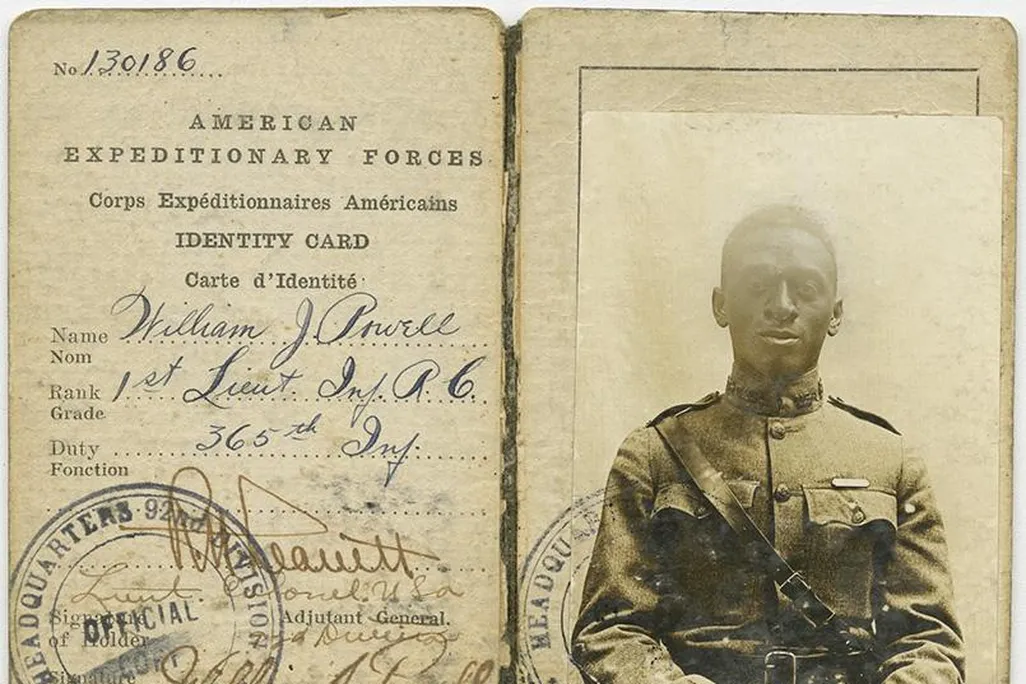 No 130186
AMERICAN
EXPEDITIONARY FORCES
Corps Expéditionnaires Américains
IDENTITY CARD
Carte d'Identité
Name William J. Powell
Nom
Rank 1st Lieut. Inf. R. C.
Grade
Duty 365th Inf.
Fonction
HEADQUARTERS 92nd DIVISION
Lieut. Colonel U.S.A.
Signature Adjutant General.
of Holder
OFFICIAL
Signature
HEADQUA